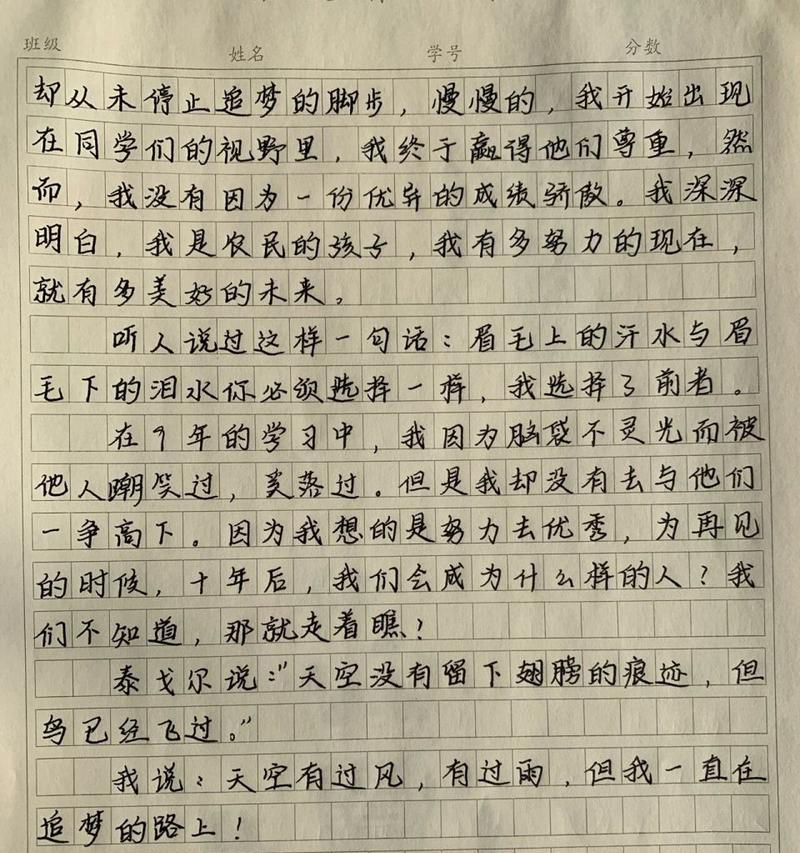 班级 姓名 学号 分数
却从未停止追梦的脚步，慢慢的，我开始出现
在同学们的视野里，我终于赢得他们尊重，然
而，我没有因为一份优异的成绩骄傲。我深深
明白，我是农民的孩子，我有多努力的现在，
就有多美好的未来。
听人说过这样一句话：眉毛上的汗水与眉
毛下的泪水你必须选择一样，我选择了前者。
在9年的学习中，我因为脑袋不灵光而被
他人嘲笑过，奚落过。但是我却没有去与他们
一争高下。因为我想的是努力去优秀，为再见
的时候，十年后，我们会成为什么样的人？我
们不知道，那就走着瞧？
泰戈尔说：“天空没有留下翅膀的痕迹，但
鸟已经飞过。”
我说：天空有过风，有过雨，但我一直在
追梦的路上！